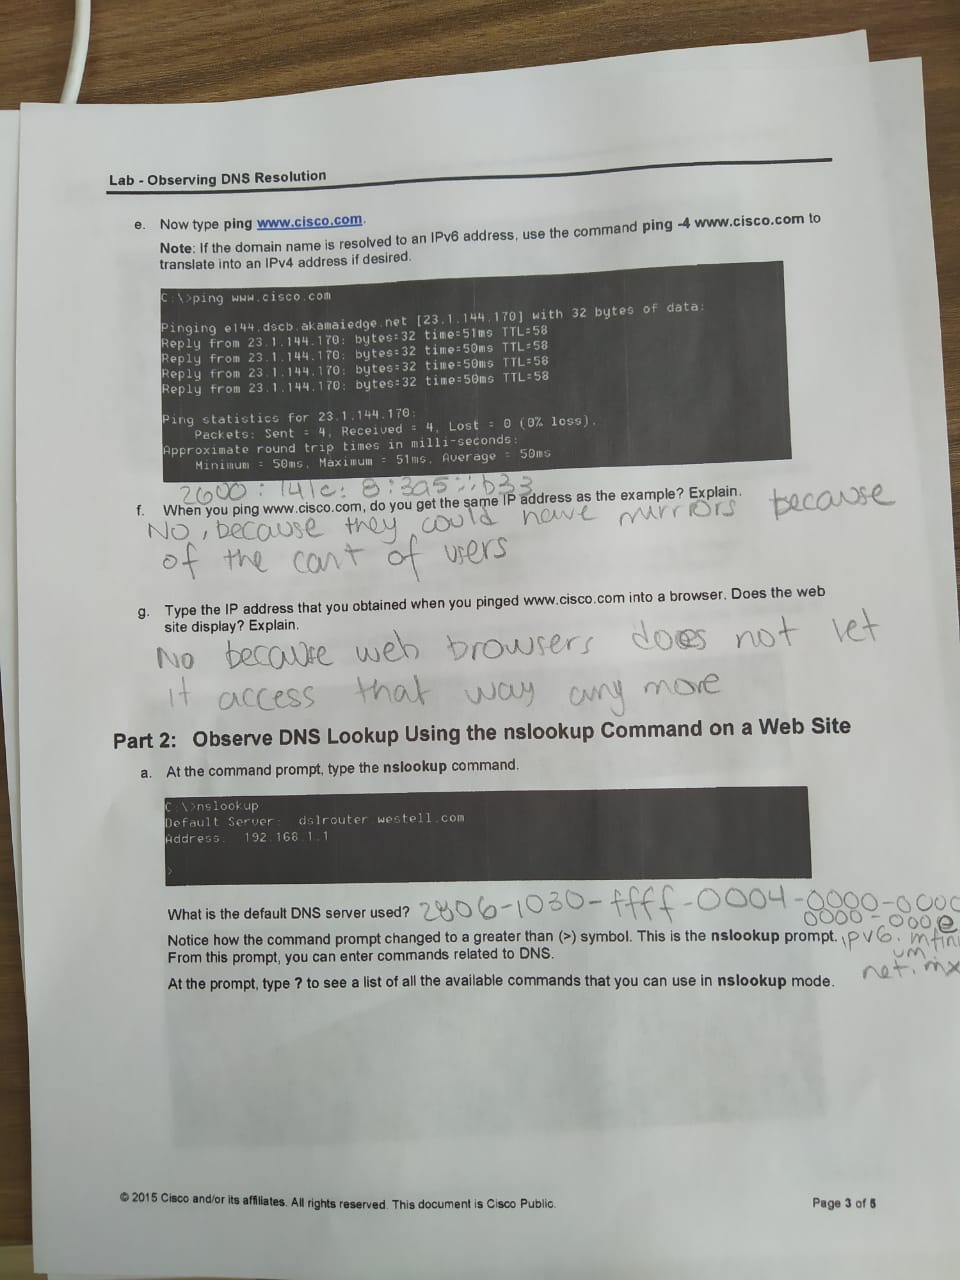 Lab - Observing DNS Resolution
e. Now type ping www.cisco.com.
Note: If the domain name is resolved to an IPv6 address, use the command ping -4 www.cisco.com to
translate into an IPv4 address if desired.
C:\>ping www.cisco.com
Pinging e144.dscb.akamaiedge.net [23.1.144.170] with 32 bytes of data:
Reply from 23.1.144.170: bytes=32 time=51ms TTL=58
Reply from 23.1.144.170: bytes=32 time=50ms TTL=58
Reply from 23.1.144.170: bytes=32 time=50ms TTL=58
Reply from 23.1.144.170: bytes=32 time=50ms TTL=58
Ping statistics for 23.1.144.170:
Packets: Sent = 4, Received = 4, Lost = 0 (0% loss),
Approximate round trip times in milli-seconds:
Minimum = 50ms, Maximum = 51ms, Average = 50ms
2600:141c:8:3a5::b33
f. When you ping www.cisco.com, do you get the same IP address as the example? Explain.
No, because they could have mirriors because
of the cant of users
g. Type the IP address that you obtained when you pinged www.cisco.com into a browser. Does the web
site display? Explain.
No because web browsers does not let
it access that way any more
Part 2: Observe DNS Lookup Using the nslookup Command on a Web Site
a. At the command prompt, type the nslookup command.
C:\>nslookup
Default Server: dslrouter.westell.com
Address: 192.168.1.1
>
What is the default DNS server used? 2806-1030-ffff-0004-0000-0000
0000-000e
Notice how the command prompt changed to a greater than (>) symbol. This is the nslookup prompt. ipv6.mfini
um
From this prompt, you can enter commands related to DNS.
net.mx
At the prompt, type ? to see a list of all the available commands that you can use in nslookup mode.
© 2015 Cisco and/or its affiliates. All rights reserved. This document is Cisco Public.
Page 3 of 5